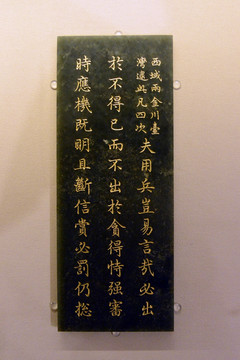 西域兩金川臺
灣遠與凡四次
夫用兵豈易言哉必出
於不得已而不出於貪得恃强審
時應機既明且斷信賞必罰仍揔